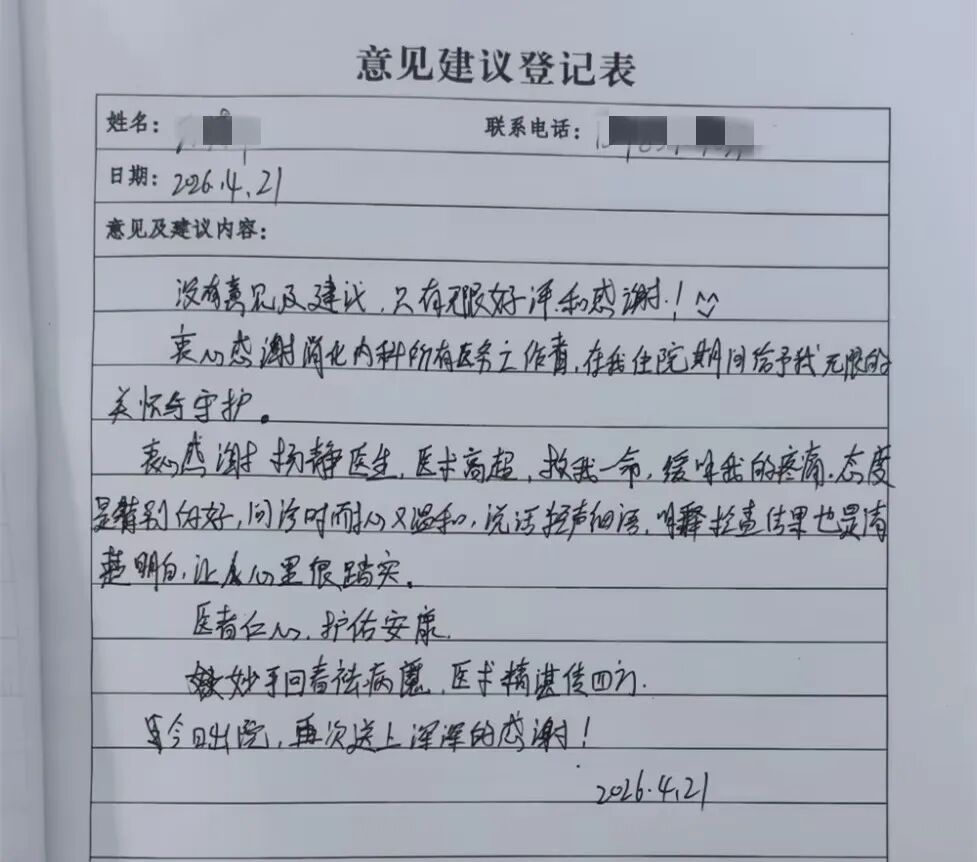 意见建议登记表
姓名：
联系电话：
日期：2026.4.21
意见及建议内容：
没有意见及建议，只有无限好评和感谢！^^
衷心感谢消化内科所有医务工作者，在我住院期间给予我无限的
关怀与守护。
衷心感谢杨静医生，医术高超，救我一命，缓解我的疼痛。态度
是特别的好，问诊时耐心又温和，说话轻声细语，解释检查结果也是清
楚明白，让人心里很踏实。
医者仁心，护佑安康。
妙手回春祛病魔，医术精湛传四方.
今日出院，再次送上深深的感谢！
2026.4.21